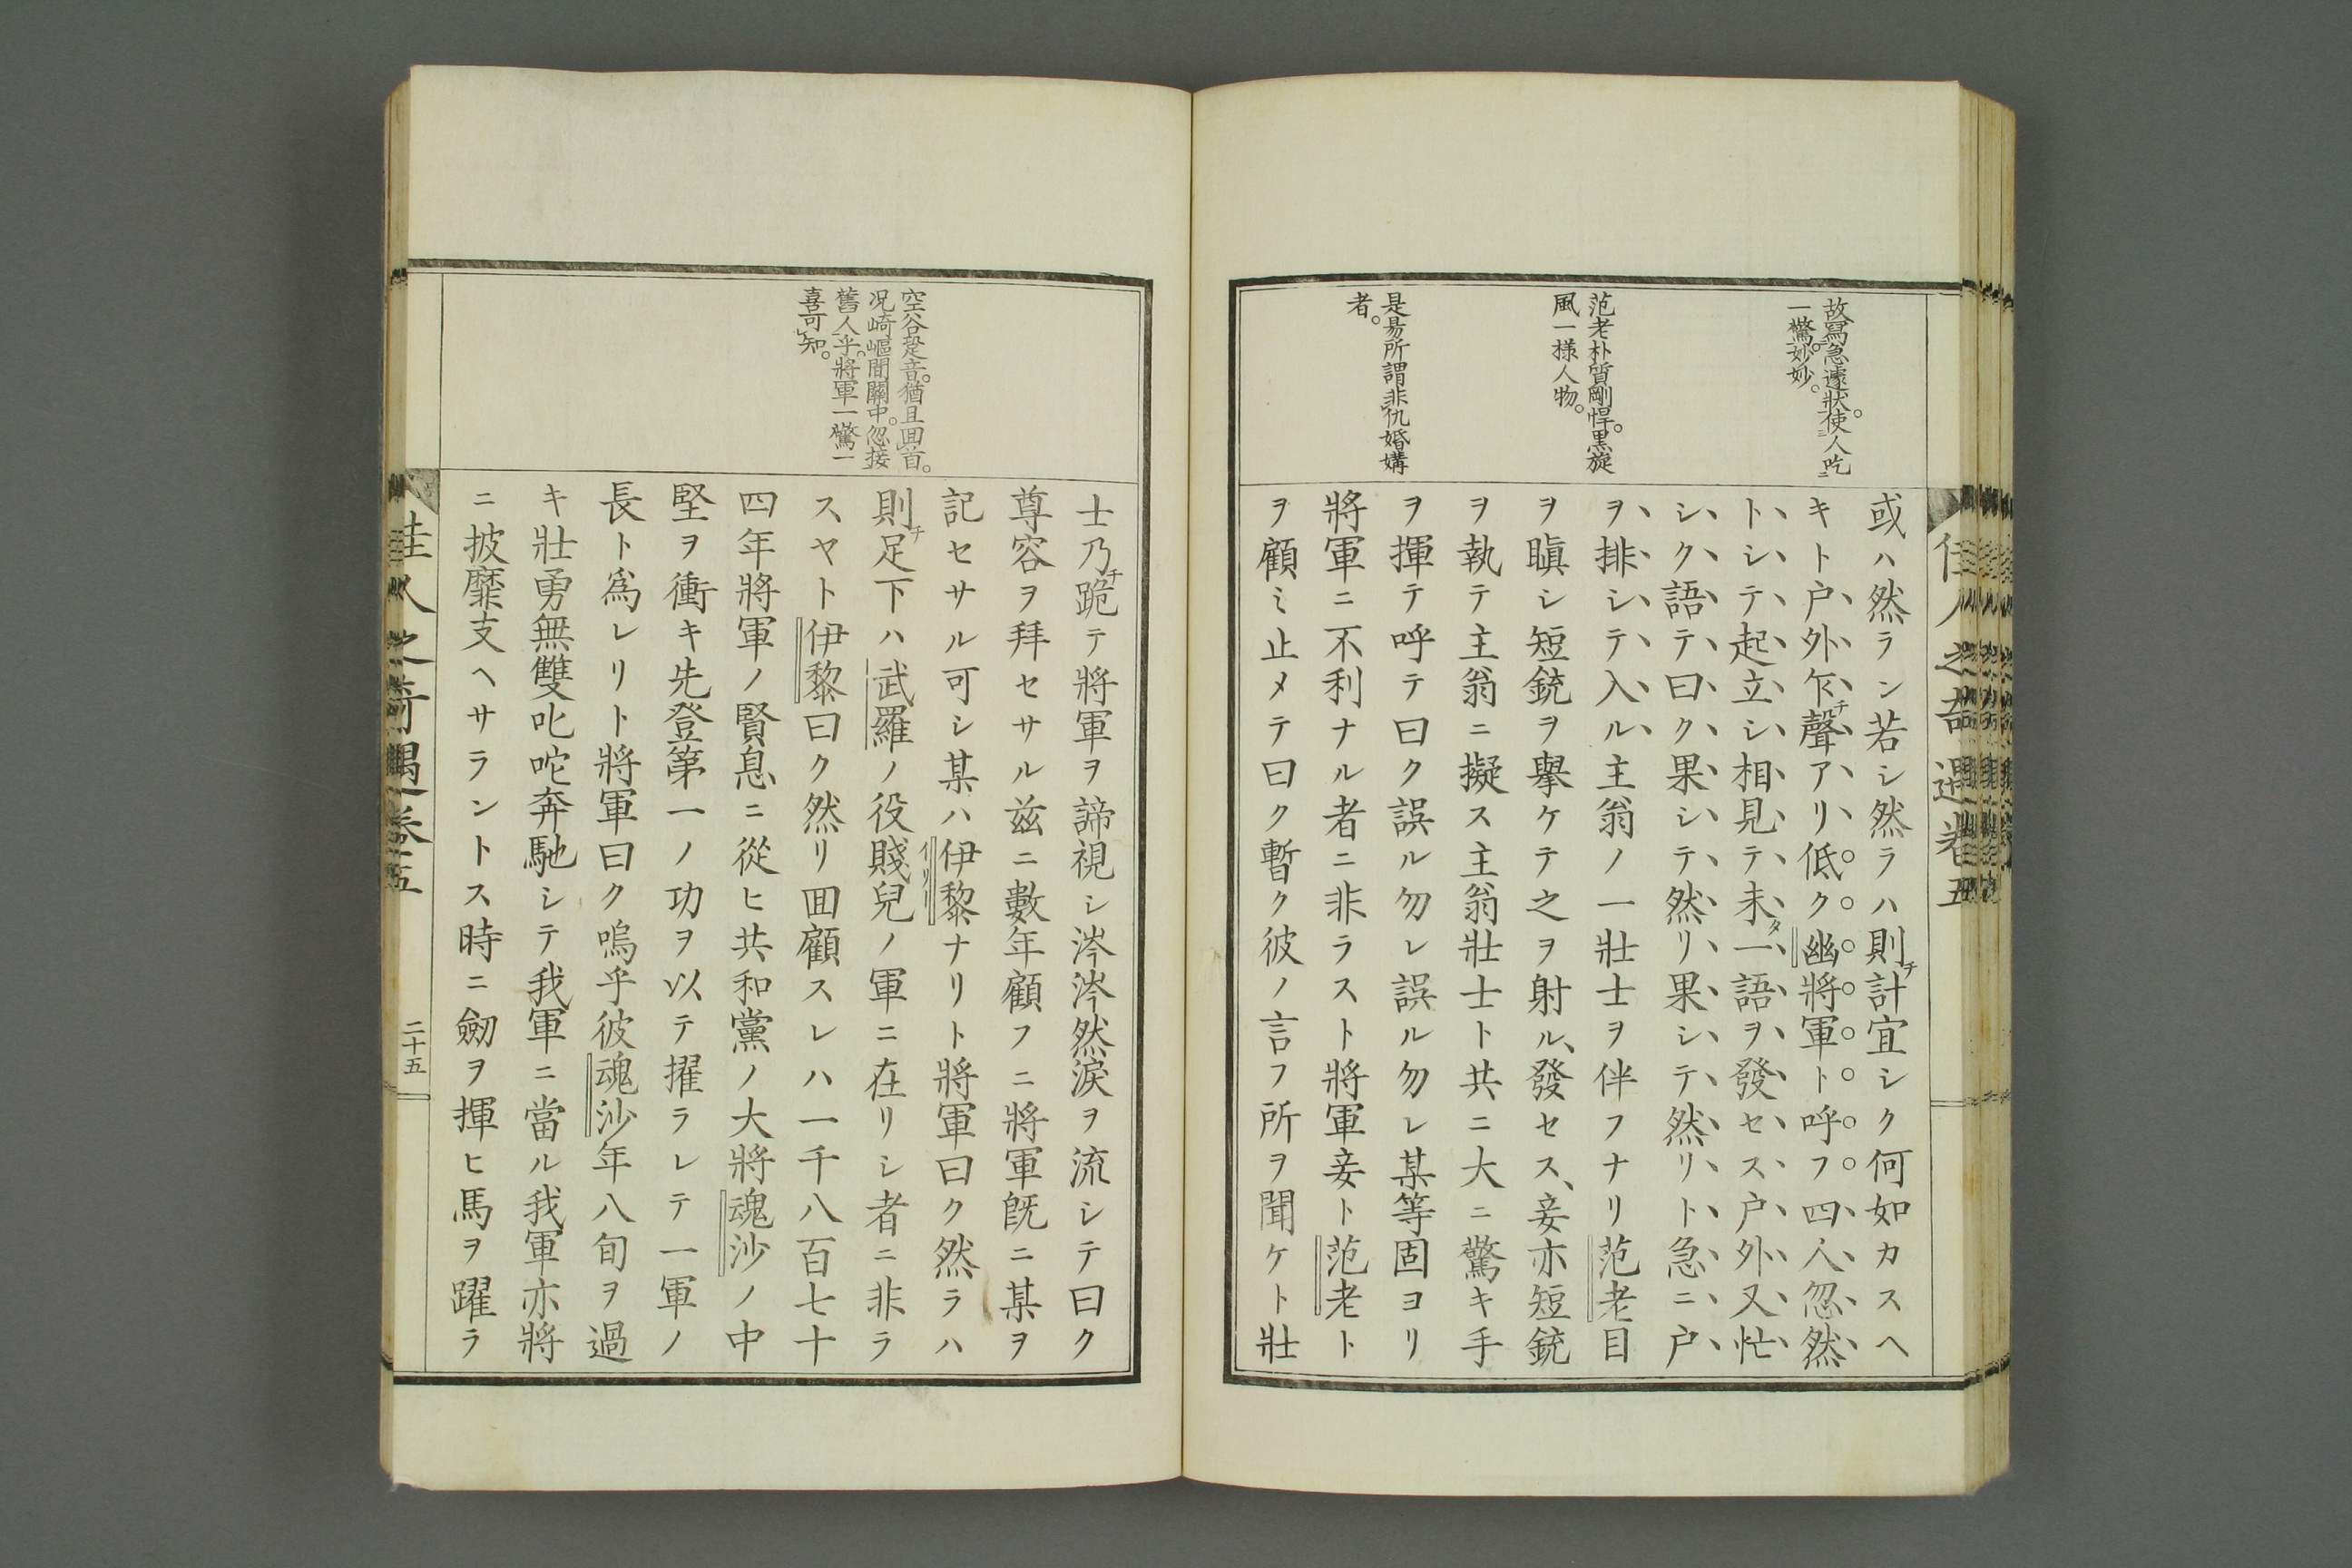 佳人之奇遇卷五
故寫急遽狀。使人吃
一驚。妙妙。
范老朴質剛悍。黑旋
風一樣人物。
是易所謂非仇婚媾
者。
或ハ然ラン若シ然ラハ則チ計宜シク何如カスヘ
キト戸外乍チ聲アリ低ク幽將軍ト呼フ四人忽然
トシテ起立シ相見テ未タ一語ヲ發セス戸外又忙
シク語テ曰ク果シテ然リ果シテ然リト急ニ戸
ヲ排シテ入ル主翁ノ一壯士ヲ伴フナリ范老目
ヲ瞋シ短銃ヲ擧ケテ之ヲ射ル、發セス、妾亦短銃
ヲ執テ主翁ニ擬ス主翁壯士ト共ニ大ニ驚キ手
ヲ揮テ呼テ曰ク誤ル勿レ誤ル勿レ某等固ヨリ
將軍ニ不利ナル者ニ非ラスト將軍妾ト范老ト
ヲ顧ミ止メテ曰ク暫ク彼ノ言フ所ヲ聞ケト壯
空谷跫音。猶且囬首。
况崎嶇間關中。忽接
舊人乎。將軍一驚一
喜可知。
士乃チ跪テ將軍ヲ諦視シ涔涔然淚ヲ流シテ曰ク
尊容ヲ拜セサル玆ニ數年顧フニ將軍既ニ某ヲ
記セサル可シ某ハ伊黎イリーナリト將軍曰ク然ラハ
則チ足下ハ武羅ノ役賤兒ノ軍ニ在リシ者ニ非ラ
スヤト伊黎曰ク然リ囬顧スレハ一千八百七十
四年將軍ノ賢息ニ從ヒ共和黨ノ大將魂沙ノ中
堅ヲ衝キ先登第一ノ功ヲ以テ擢ラレテ一軍ノ
長ト爲レリト將軍曰ク嗚乎彼魂沙年八旬ヲ過
キ壯勇無雙叱咤奔馳シテ我軍ニ當ル我軍亦將
ニ披靡支ヘサラントス時ニ劒ヲ揮ヒ馬ヲ躍ラ
佳人之奇遇卷五
二十五